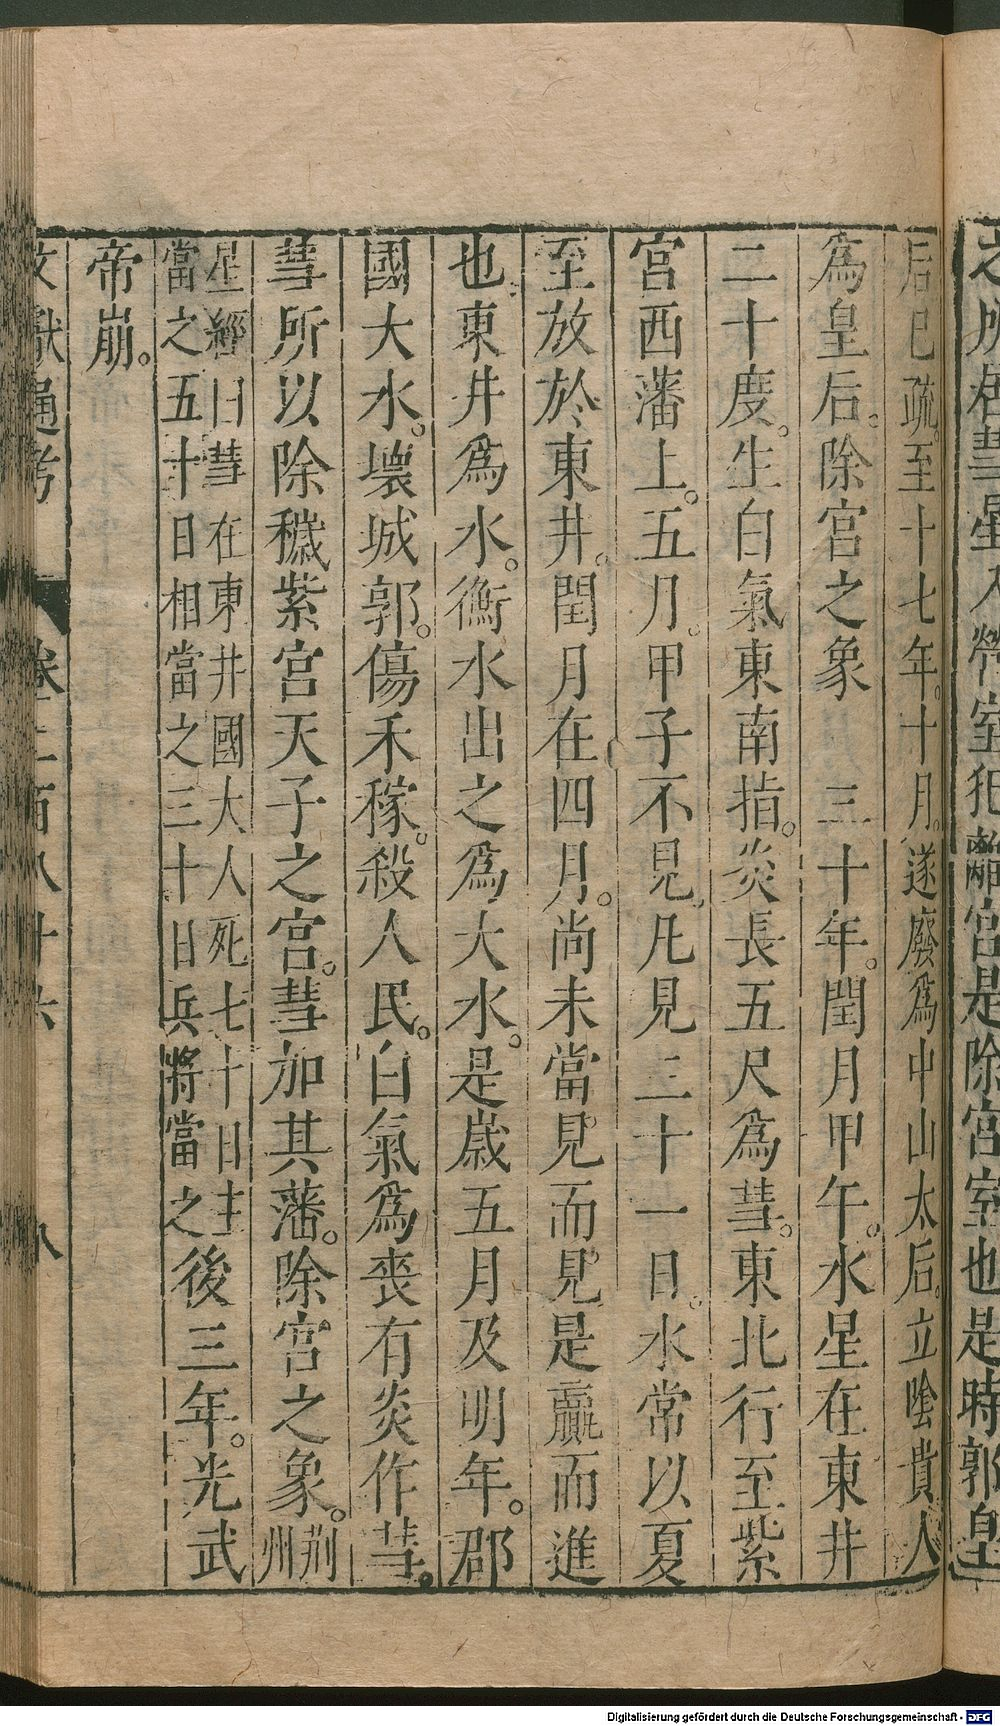 之所居彗星入營室犯離宮是除宮室也是時郭皇
后已疏至十七年十月遂廢為中山太后立陰貴人
為皇后。除宮之象　三十年。閏月甲午。水星在東井
二十度。生白氣東南指。炎長五尺為彗。東北行至紫
宮西藩上。五月。甲子不見。凡見三十一日。水常以夏
至放於東井。閏月在四月。尚未當見而見是贏而進
也東井為水。衡水出之為大水。是歲五月及明年。郡
國大水。壞城郭。傷禾稼。殺人民。白氣為喪有炎作彗。
彗所以除穢紫宮天子之宮。彗加其藩。除宮之象。荆州
星經曰彗在東井國大人死七十日主
當之五十日相當之三十日兵將當之後三年。光武
帝崩。
文獻通考　卷二百八十六　八
Digitalisierung gefördert durch die Deutsche Forschungsgemeinschaft - DFG